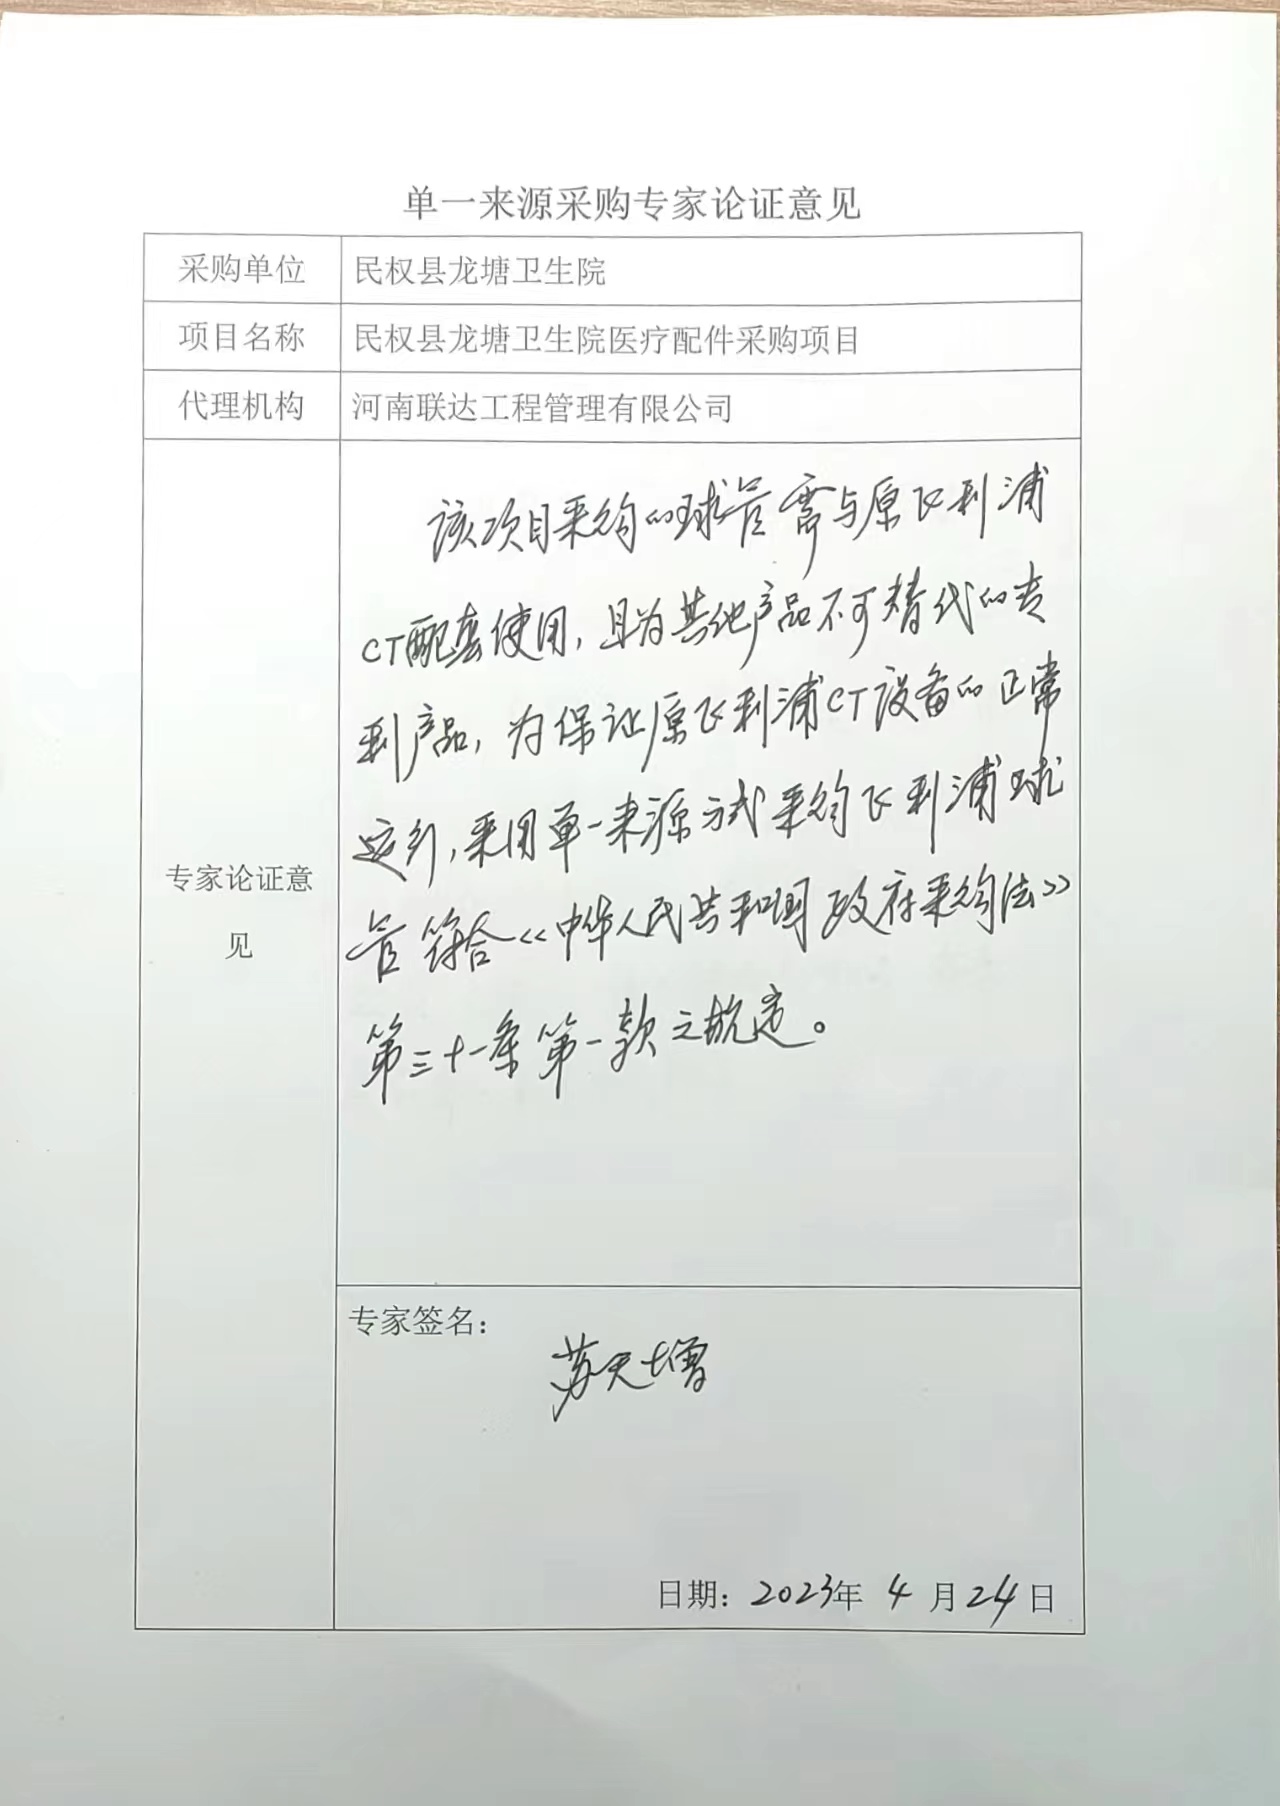 单一来源采购专家论证意见
采购单位 民权县龙塘卫生院
项目名称 民权县龙塘卫生院医疗配件采购项目
代理机构 河南联达工程管理有限公司
专家论证意
见
该项目采购的球管需与原飞利浦
CT配套使用,且为其他产品不可替代的专
利产品,为保证原飞利浦CT设备的正常
运行,采用单一来源方式采购飞利浦球
管符合《中华人民共和国政府采购法》
第三十一条第一款之规定。
专家签名:
苏天增
日期:2023年4月24日